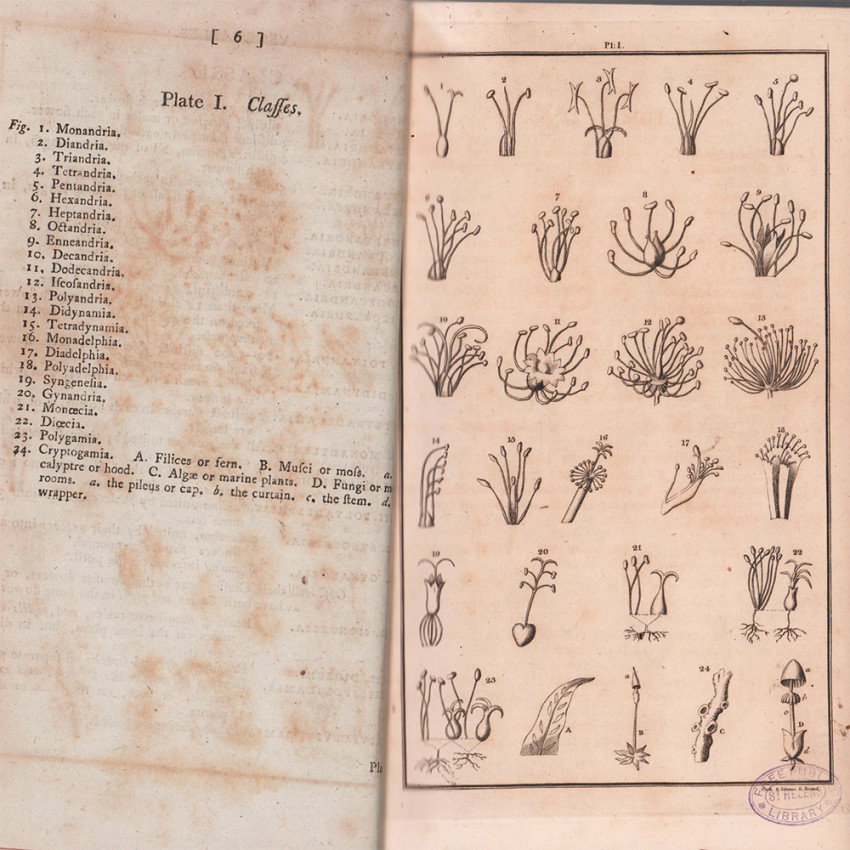 [ 6 ]
Plate I. Claſſes.
Fig. 1. Monandria.
2. Diandria.
3. Triandria.
4. Tetrandria.
5. Pentandria.
6. Hexandria.
7. Heptandria.
8. Octandria.
9. Enneandria.
10. Decandria.
11. Dodecandria.
12. Iſcoſandria.
13. Polyandria.
14. Didynamia.
15. Tetradynamia.
16. Monadelphia.
17. Diadelphia.
18. Polyadelphia.
19. Syngeneſia.
20. Gynandria.
21. Monœcia.
22. Diœcia.
23. Polygamia.
24. Cryptogamia. A. Filices or fern. B. Muſci or moſs. a.
calyptre or hood. C. Algæ or marine plants. D. Fungi or m
rooms. a. the pileus or cap. b. the curtain. c. the ſtem. d.
wrapper.
Pl
Pl: I.
1 2 3 4 5
7 8 9
10 11 12 13
14 15 16 17 18
19 20 21 22
23 A a B 24 C a b c D d
ST HELENS
LIBRARY